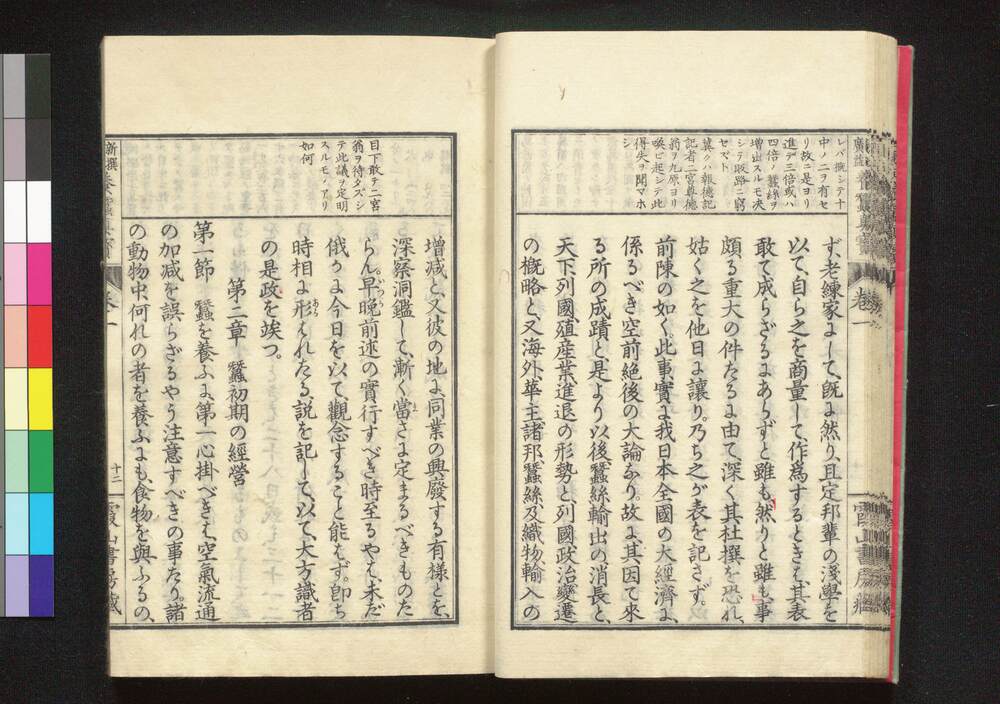 レバ概シテ十
中ノ二ヲ有セ
リ故ニ是ヨリ
進デ三倍或ハ
四倍ノ蠶絲ヲ
増出スルモ决
シテ販路ニ窮
セズト
冀クハ報德記
記者二宮尊德
翁ヲ九原ヨリ
喚ビ起シテ此
得失ヲ聞マホ
シ
ず、老練家にして、既に然り、且定邦輩の淺學を
以て、自ら之を商量して、作爲するときは、其表
敢て成らざるにあらずと雖も、然りと雖も、事
頗る重大の件たるに由て、深く其杜撰を恐れ、
姑く之を他日に讓り。乃ち之が表を記さず。
前陳の如く此事實は我日本全國の大經濟に
係るべき空前絶後の大論なり。故に、其因て來
る所の成蹟と、是より以後蠶絲輸出の消長と、
天下、列國、殖産業進退の形勢と、列國政治變遷
の槪略と、又海外、華主諸邦蠶絲、及織物輸入の
卷一
目下敢テ二宮
翁ヲ待タズシ
テ此議ヲ定明
スルモノアリ
如何
増减と、又彼の地に同業の興廢する有樣とを、
深察洞鑑して、漸く當さに定まるべきものた
らん。早晩前述の實行すべき時至るやは、未だ
俄かに今日を以て、觀念すること能はず。卽ち
時相に形はれたる、說を記して、以て、大方識者
の是政を竢つ。
第二章 蠶初期の經營
第一節 蠶を養ふに、第一心掛べきは、空氣流通
の加减を誤らざるやう注意すべきの事たり。諸
の動物中、何れの者を養ふにも、食物を與ふるの、
新撰養蠶典寶
卷一
十二
霞山書房藏